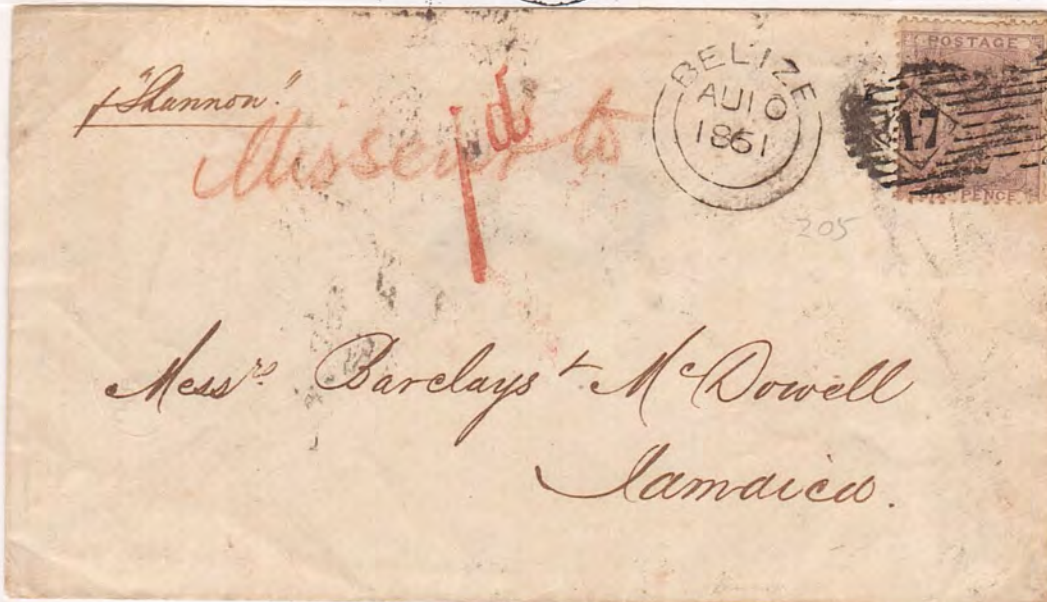 p "Shannon".
Missent to
1d
BELIZE
AU10
1861
POSTAGE
SIX PENCE
205
Messrs Barclays & McDowell
Jamaica.